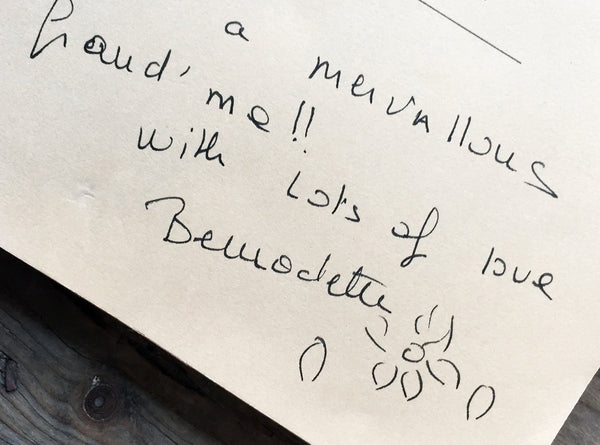 a mervallous
Grand' me!!
with lots of love
Bernadette